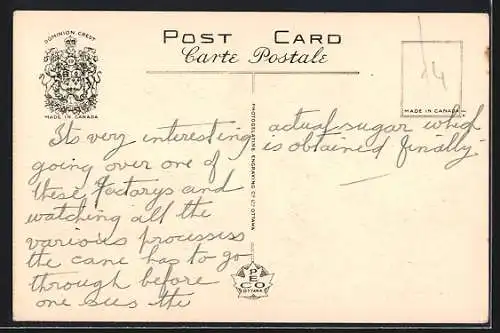 POST CARD
Carte Postale
DOMINION CREST
MADE IN CANADA
14
MADE IN CANADA
Its very interesting
going over one of
these factorys and
watching all the
various processess
the cane has to go
through before
one sees the
PHOTOGELATINE ENGRAVING CO. LTD. OTTAWA
PECO
OTTAWA
actual sugar which
is obtained finally.